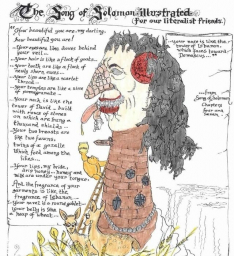 The Song of Solomon illustrated
(for our literalist friends.)
"How beautiful you are, my darling.
how beautiful you are!
Your eyes are like doves behind
your veil...
Your hair is like a flock of goats...
Your teeth are like a flock of
newly shorn ewes...
Your lips are like a scarlet
thread...
Your temples are like a slice
of pomegranate...
Your neck is like the
tower of David, built
with rows of stones
on which are hung a
thousand shields...
Your two breasts are
like two fawns,
twins of a gazelle
Which feed among the
lilies...
Your lips, my bride,
drip honey; honey and
milk are under your tongue,
And the fragrance of your
garments is like the
fragrance of Lebanon...
Your navel is a round goblet...
Your belly is like a
heap of wheat...
...your nose is like the
tower of Lebanon,
which faces toward
Damascus..."
...from
Song of Solomon
Chapters
four and
seven.